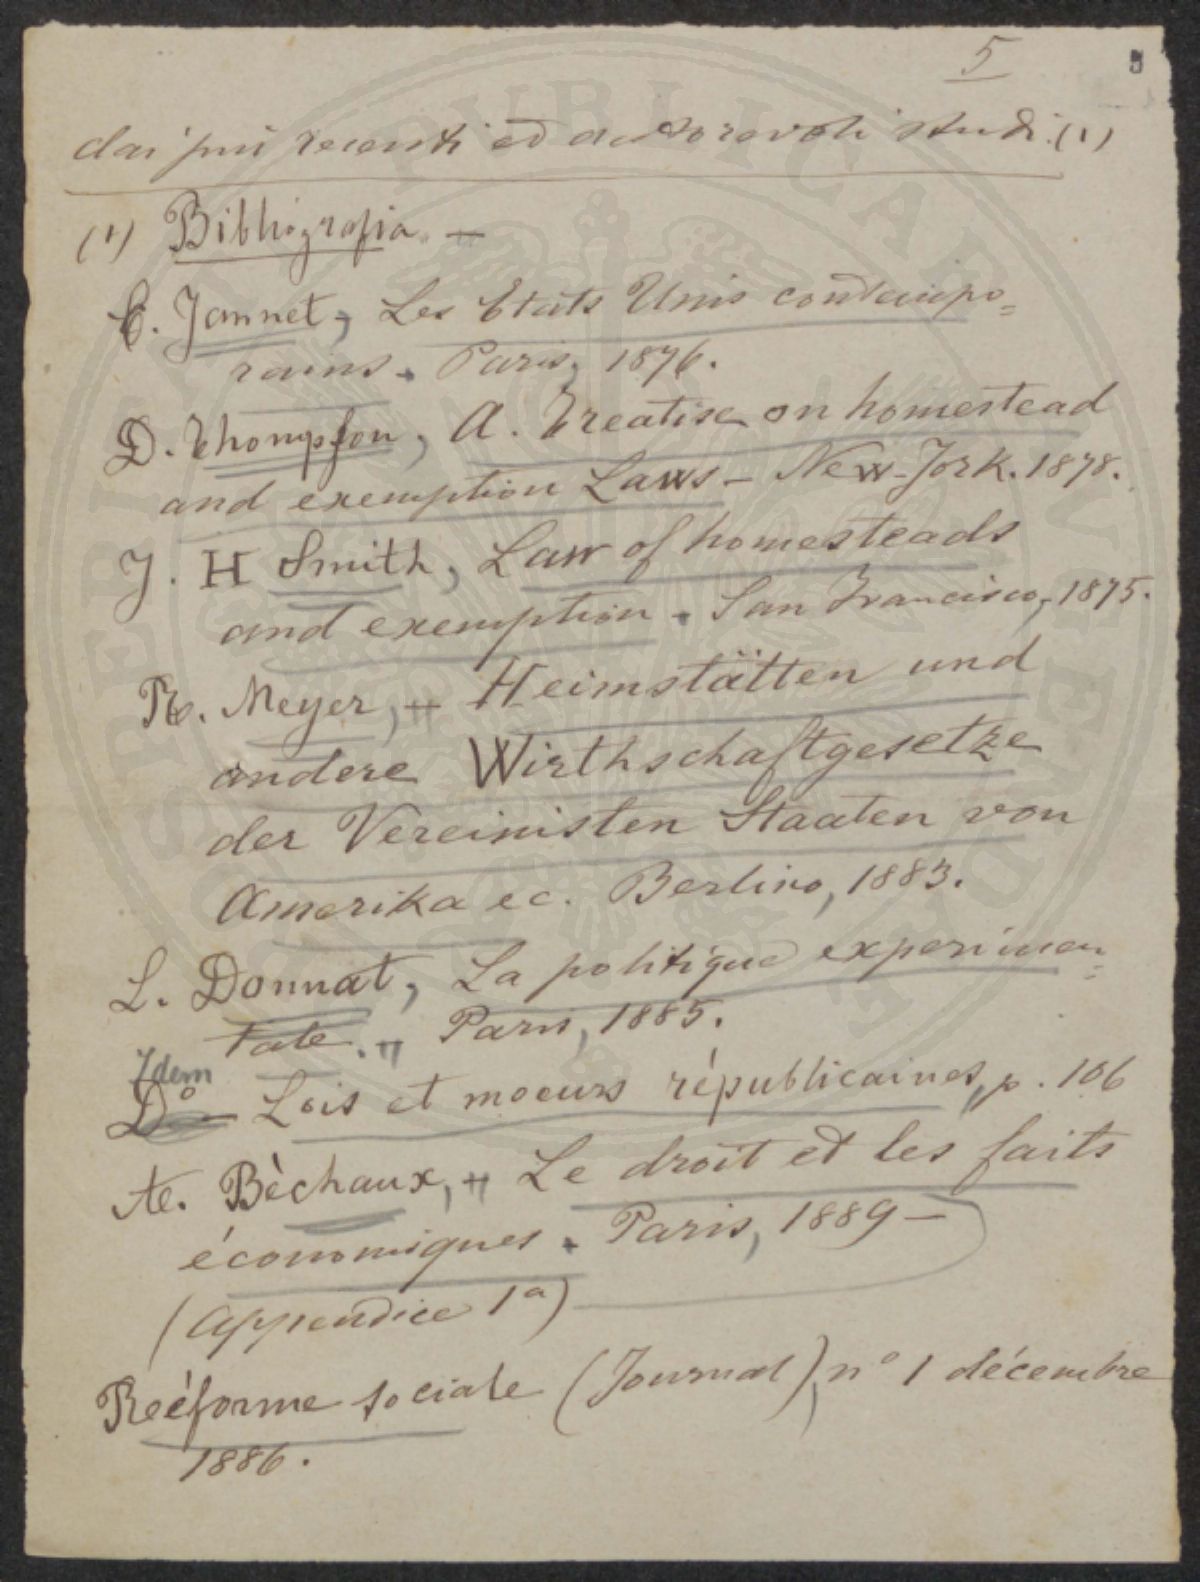 5
5
dai più recenti ed autorevoli studi. (1)
(1) Bibliografia. —
C. Jannet, Les Etats Unis contempo=
rains. Paris, 1876.
D. Thompson, A. Treatise on homestead
and exemption Laws – New-Jork. 1878.
J. H Smith, Law of homesteads
and exemption. San Francisco, 1875.
R. Meyer, Heimstätten und
andere Wirthschaftgesetze
der Vereinisten Staaten von
Amerika ec. Berlino, 1883.
L. Donnat, La politique experimen=
tale. Paris, 1885.
Idem
D° Lois et moeurs républicaines, p. 106
A. Bèchaux, Le droit et les faits
économiques. Paris, 1889 –
(Appendice 1a)
Reéforme sociale (Journal), n° 1 décembre
1886.